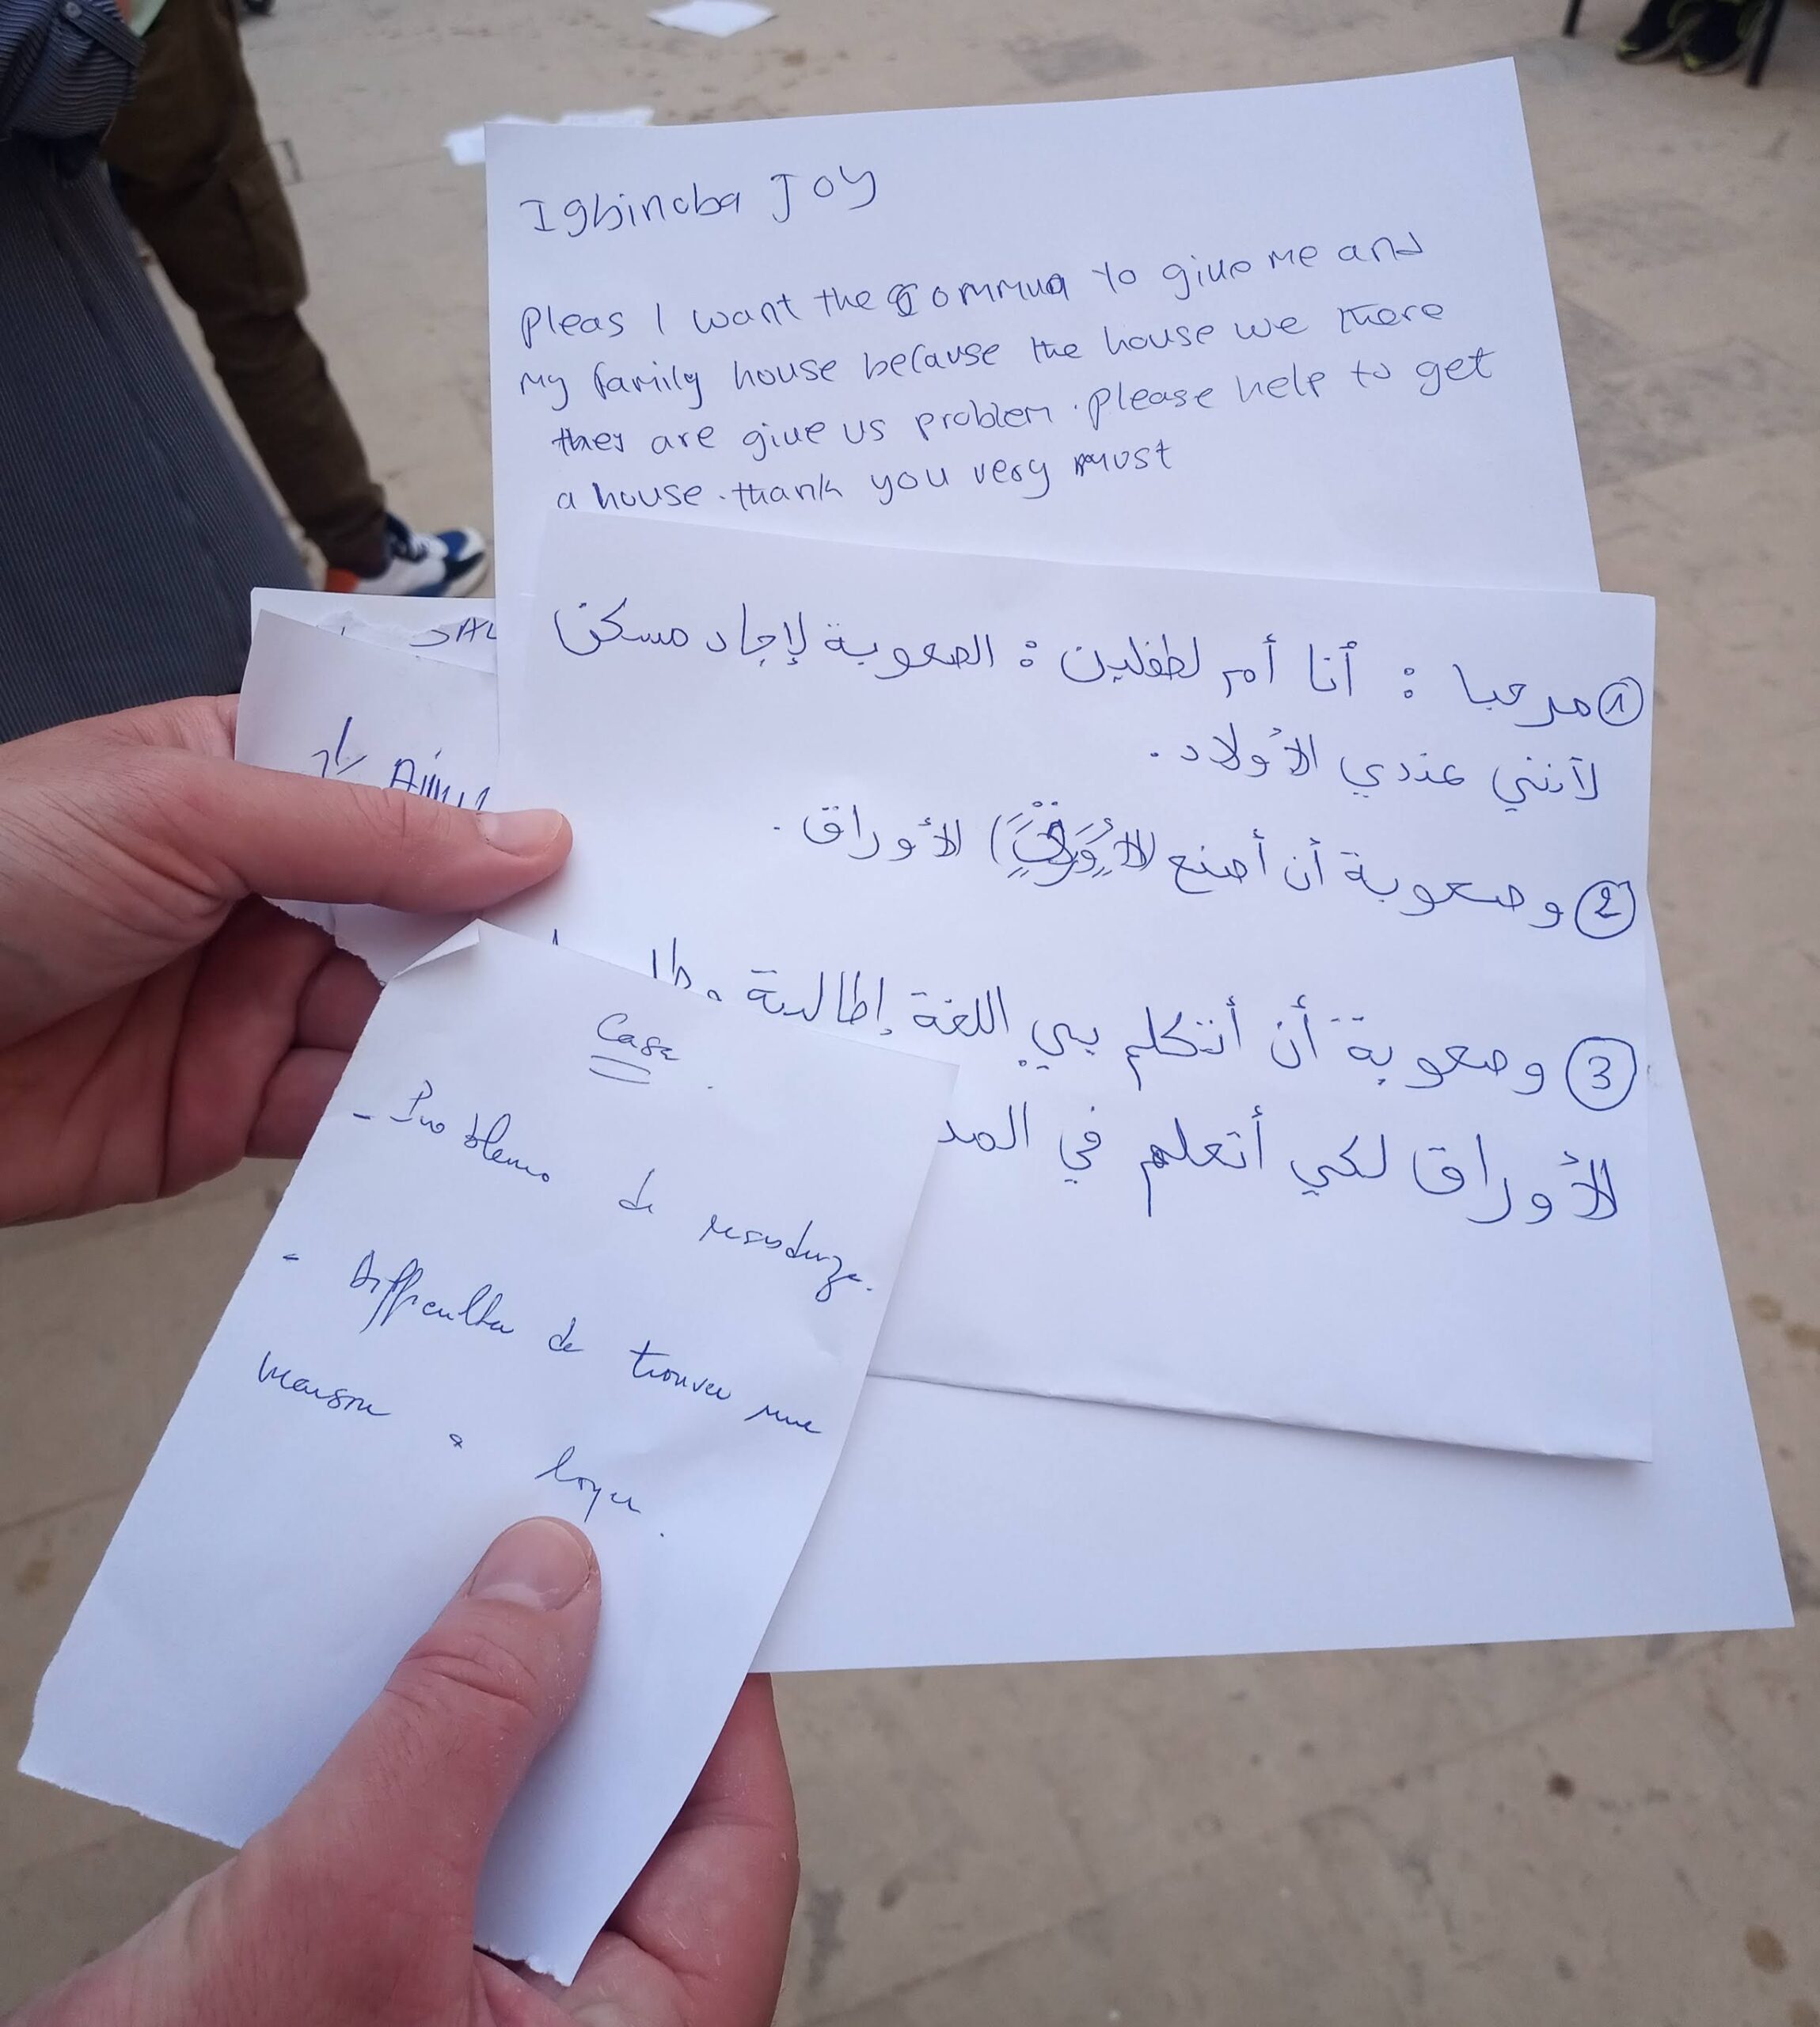 Igbinoba Joy
Pleas I want the Commua to give me and
my family house because the house we there
they are give us problem. Please help to get
a house. thank you very must
① مرحبا : أنا أم لطفلين : الصعوبة لإجاد مسكن
لأنني عندي الأولاد.
② وصعوبة أن أصنع الأوراق.
③ وصعوبة أن أتكلم بي اللغة إطالية
الأوراق لكي أتعلم في المد
Casa
- Problema di residenza.
- difficulta de trouver une
maison a loyer.